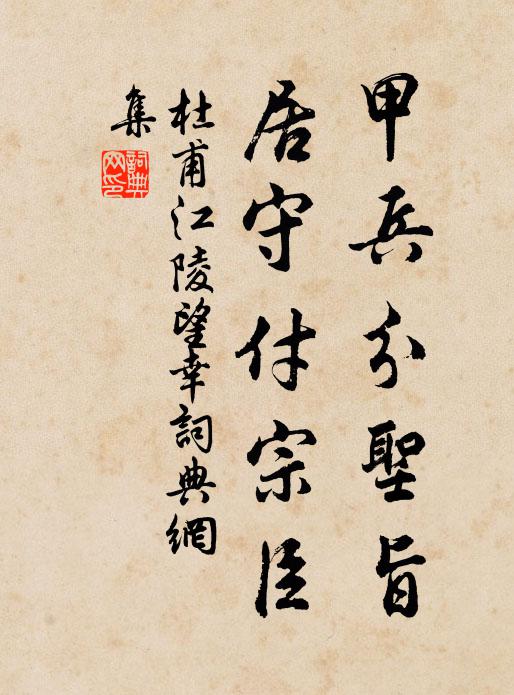 甲兵分聖旨
居守付宗臣
杜甫江陵望幸詞典網
集
詞典
网印